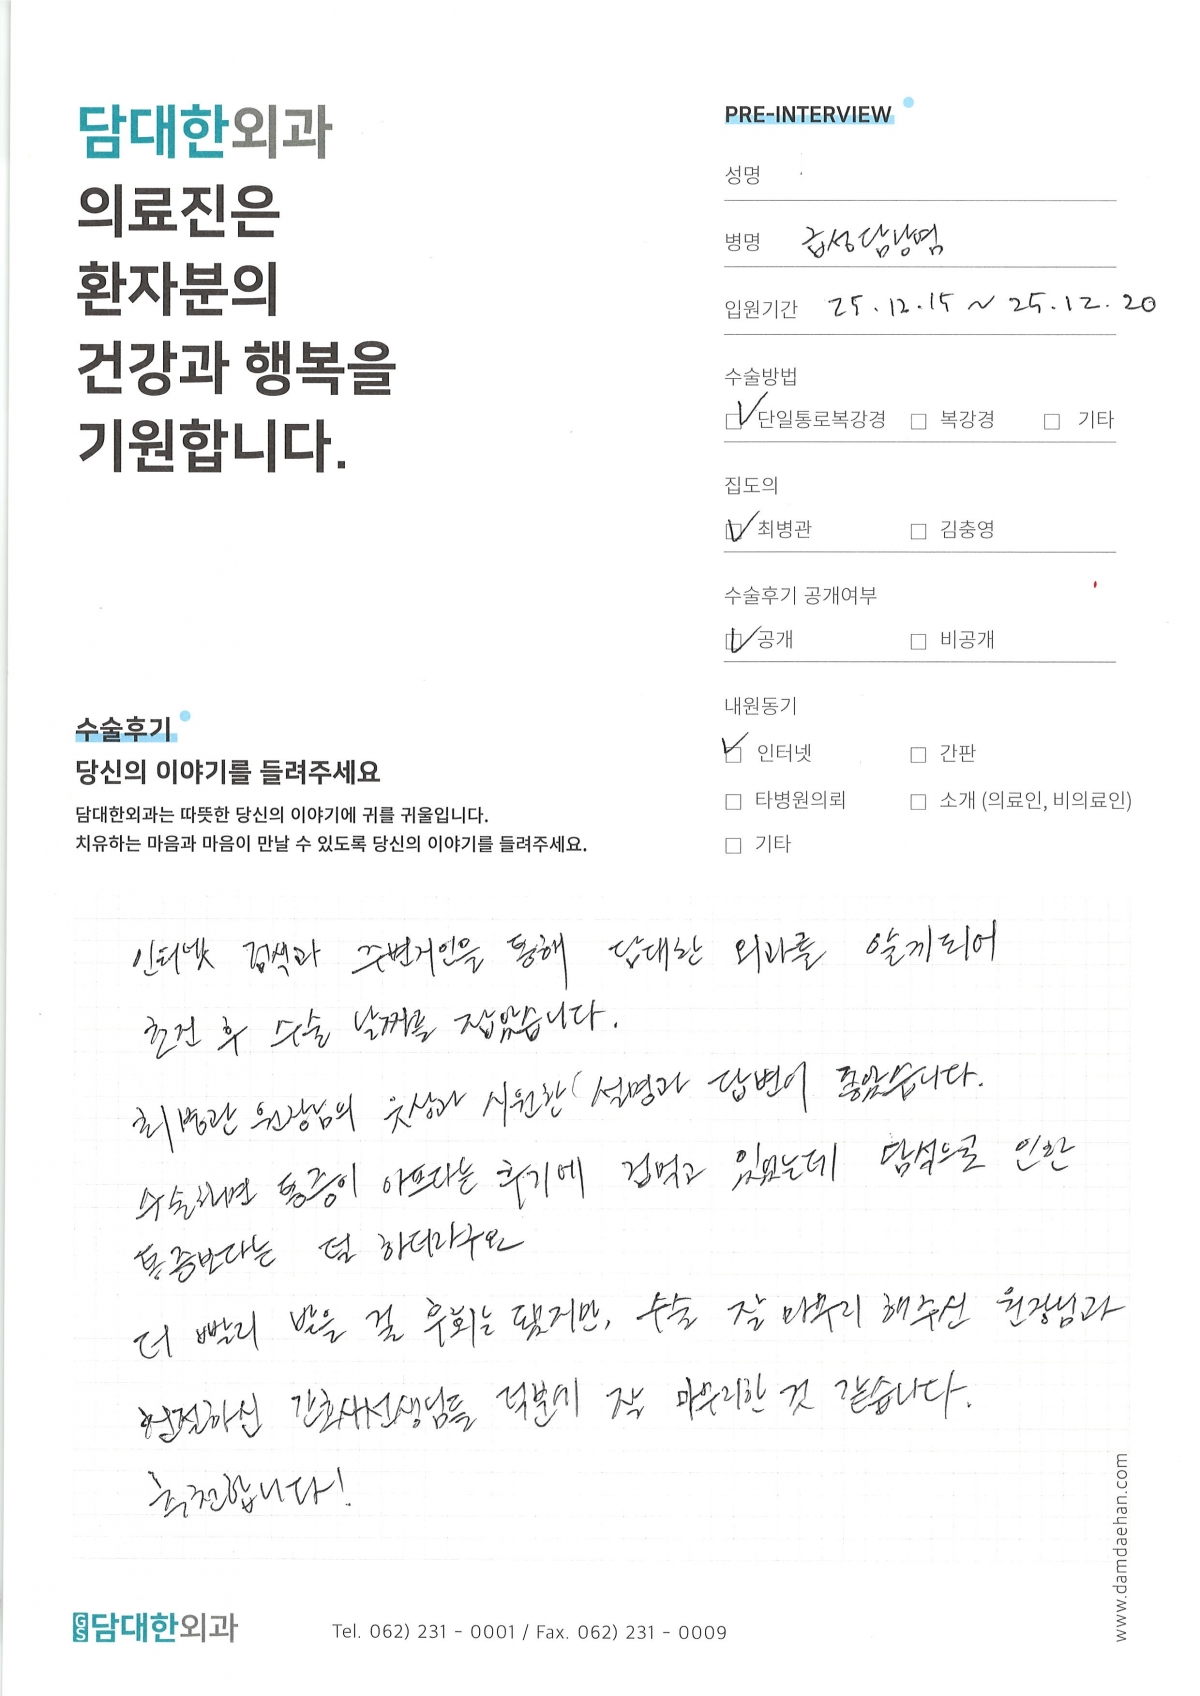 담대한외과
의료진은
환자분의
건강과 행복을
기원합니다.
PRE-INTERVIEW
성명
병명 급성담낭염
입원기간 25.12.15 ~ 25.12.20
수술방법
☑ 단일통로복강경 □ 복강경 □ 기타
집도의
☑ 최병관 □ 김충영
수술후기 공개여부
☑ 공개 □ 비공개
내원동기
☑ 인터넷 □ 간판
□ 타병원의뢰 □ 소개 (의료인, 비의료인)
□ 기타
수술후기
당신의 이야기를 들려주세요
담대한외과는 따뜻한 당신의 이야기에 귀를 귀울입니다.
치유하는 마음과 마음이 만날 수 있도록 당신의 이야기를 들려주세요.
인터넷 검색과 주변지인을 통해 담대한 외과를 알게되어
후 수술 날짜를 잡았습니다.
최병관 원장님의 웃상과 시원한 설명과 답변이 좋았습니다.
수술하면 통증이 아프다는 후기에 겁먹고 있었는데 담석으로 인한
통증보다는 덜 하더라구요
더 빨리 받을 걸 후회는 됐지만, 수술 잘 마무리 해주신 원장님과
친절하신 간호사선생님들 덕분에 잘 마무리한 것 같습니다.
추천합니다!
GS담대한외과
Tel. 062) 231 - 0001 / Fax. 062) 231 - 0009
www.damdaehan.com